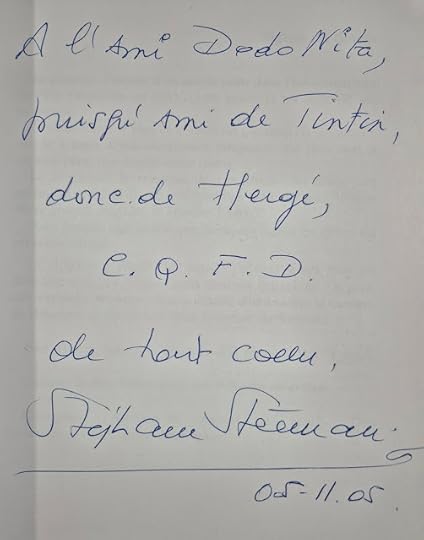 A l'Ami Dodo Nita,
puisqu' Ami de Tintin,
donc de Hergé,
C. Q. F. D.
de tout coeur,
Stéphane Steeman.
05-11.05.